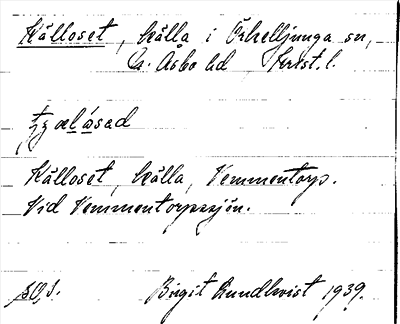 Källoset, källa i Örkelljunga sn,
N. Åsbo hd Krist. l.
Källoset, källa, Vemmentorp.
Vid Vemmentorpssjön.
Birgit Rundkvist 1939.